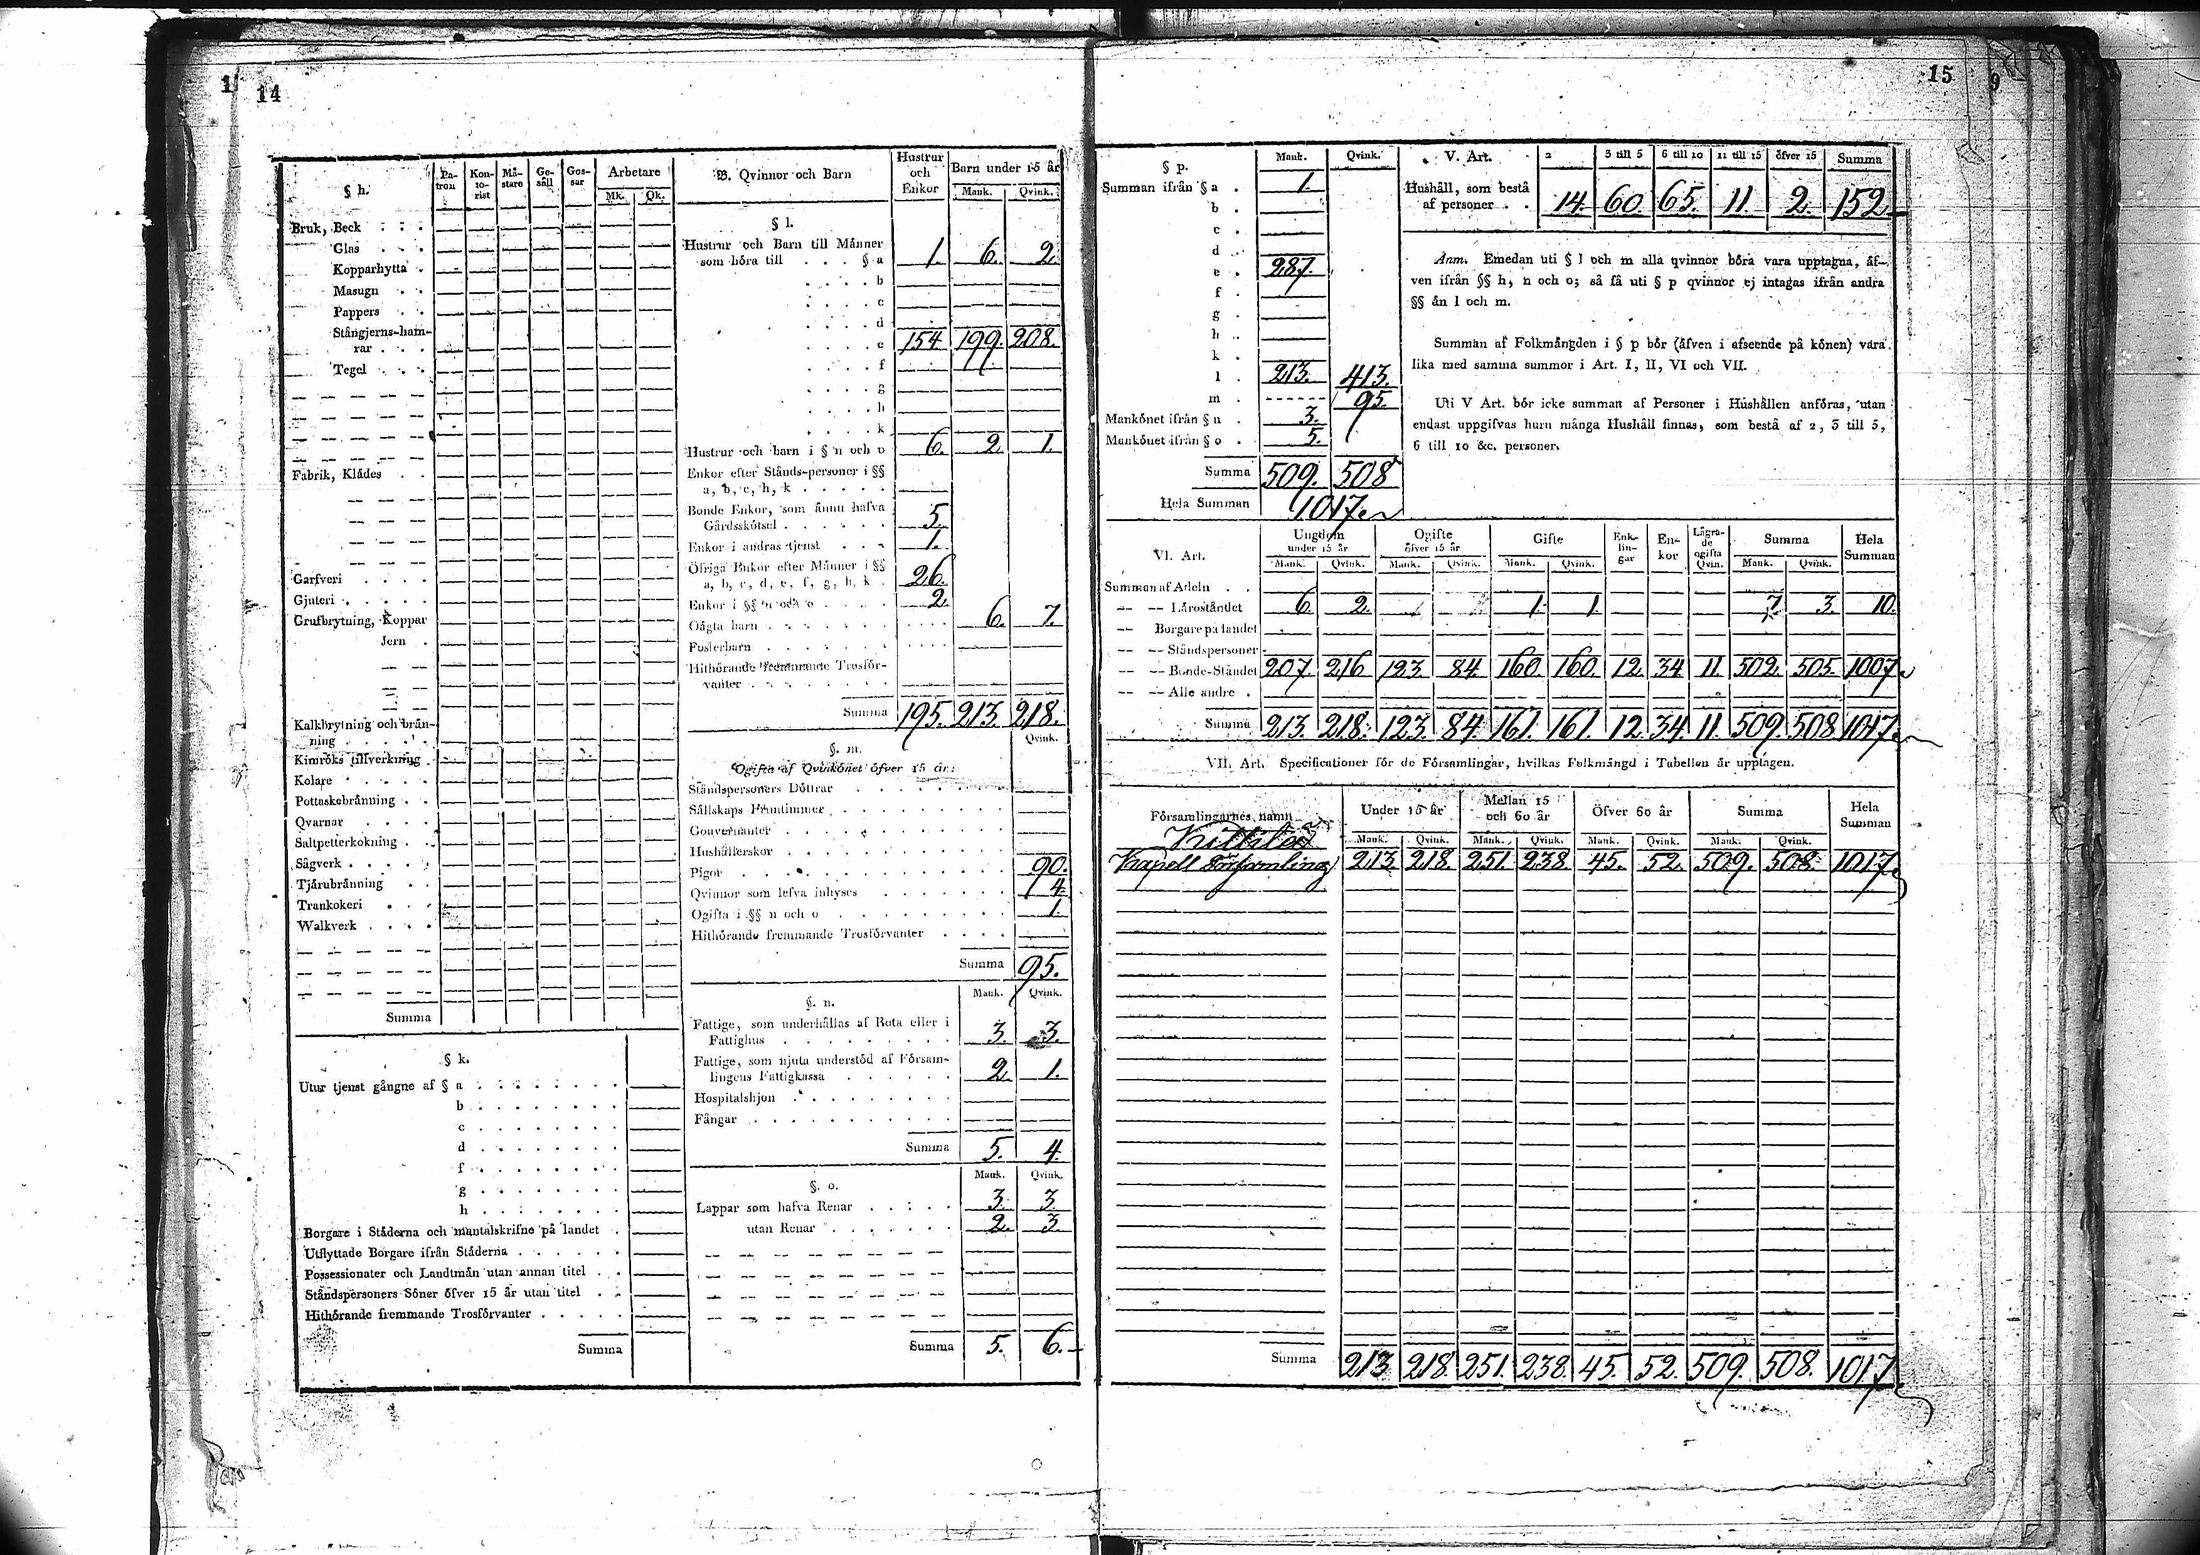 14
§ h.
Pa-tron Kon-to-rist Mä-stare Ge-säll Gos-sar Arbetare
Mk. Qk.
Bruk, Beck . . .
Glas . . .
Kopparhytta .
Masugn . .
Pappers . .
Stångjerns-ham-
rar . . .
Tegel . . .
Fabrik, Klädes . .
Garfveri . . . .
Gjuteri . . . . .
Grufbrytning, Koppar
Jern .
Kalkbrytning och brän-
ning . . . . .
Kimröks tillverkning .
Kolare . . . . .
Pottaskebränning . .
Qvarnar . . . .
Saltpetterkokning . .
Sågverk . . . . .
Tjärubränning . .
Trankokeri . . .
Walkverk . . . .
Summa
§ k.
Utur tjenst gångne af § a . . . . . . . .
b . . . . . . . .
c . . . . . . . .
d . . . . . . . .
f . . . . . . . .
g . . . . . . . .
h . . . . . . . .
Borgare i Städerna och mantalskrifne på landet .
Utflyttade Borgare ifrån Städerna . . . . . .
Possessionater och Landtmän utan annan titel . .
Ståndspersoners Söner öfver 15 år utan titel . .
Hithörande fremmande Trosförvanter . . . . .
Summa
B. Qvinnor och Barn
Hustrur och Enkor Barn under 15 år
Mank. Qvink.
§ l.
Hustrur och Barn till Männer
som höra till . . . § a 1. 6. 2.
. . . . b
. . . . c
. . . . d
. . . . e 154 199. 208.
. . . . f
. . . . g
. . . . h
. . . . k
Hustrur och barn i § n och o 6. 2. 1.
Enkor efter Stånds-personer i §§
a, b, c, h, k . . . . .
Bonde Enkor, som ännu hafva
Gårdsskötsel . . . . . . 5.
Enkor i andras tjenst . . . 1.
Öfriga Enkor efter Männer i §§
a, b, c, d, e, f, g, h, k . 26.
Enkor i §§ n och o . . . . 2.
Oägta barn . . . . . . . 6. 7.
Fosterbarn . . . . . . .
Hithörande fremmande Trosför-
vanter . . . . . . . .
Summa 195. 213. 218.
§. m. Qvink.
Ogifta af Qvinkönet öfver 15 år:
Ståndspersoners Döttrar . . . . . . . .
Sällskaps Fruntimmer . . . . . . . . .
Gouvernanter . . . . . . . . . . . .
Hushållerskor . . . . . . . . . . . .
Pigor . . . . . . . . . . . . . . 90.
Qvinnor som lefva inhyses . . . . . . . 4.
Ogifta i §§ n och o . . . . . . . . . 1.
Hithörande fremmande Trosförvanter . . . .
Summa 95.
§. n. Mank. Qvink.
Fattige, som underhållas af Rota eller i
Fattighus . . . . . . . . . 3. 3.
Fattige, som njuta understöd af Försam-
lingens Fattigkassa . . . . . . 2. 1.
Hospitalshjon . . . . . . . . .
Fångar . . . . . . . . . . .
Summa 5. 4.
§. o. Mank. Qvink.
Lappar som hafva Renar . . . . . 3. 3.
utan Renar . . . . . . . 2. 3.
Summa 5. 6.
15
9
§ p. Mank. Qvink.
Summan ifrån § a . 1.
b .
c .
d
e . 287.
f .
g .
h .
k .
l . 213. 413.
m . 95.
Mankönet ifrån § n . 3.
Mankönet ifrån § o . 5.
Summa 509. 508
Hela Summan 1017.
V. Art. 2 3 till 5 6 till 10 11 till 15 öfver 15 Summa
Hushåll, som bestå
af personer . . 14. 60. 65. 11. 2. 152
Anm. Emedan uti § l och m alla qvinnor böra vara upptagna, äf-
ven ifrån §§ h, n och o; så få uti § p qvinnor ej intagas ifrån andra
§§ än l och m.
Summan af Folkmängden i § p bör (äfven i afseende på könen) vara
lika med samma summor i Art. I, II, VI och VII.
Uti V Art. bör icke summan af Personer i Hushållen anföras, utan
endast uppgifvas huru många Hushåll finnas, som bestå af 2, 3 till 5,
6 till 10 &c. personer.
VI. Art. Ungdom under 15 år Ogifte öfver 15 år Gifte Enk-lin-gar En-kor Lägra-de ogifta Qvin. Summa Hela Summan
Mank. Qvink. Mank. Qvink. Mank. Qvink. Mank. Qvink.
Summan af Adeln . .
— — Läroståndet 6. 2. 1. 1. 7. 3. 10.
— Borgare på landet
— — Ståndspersoner
— — Bonde-Ståndet 207. 216 123. 84. 160. 160. 12. 34. 11. 502. 505. 1007
— — Alle andre .
Summa 213. 218. 123. 84 161. 161. 12. 34. 11. 509. 508 1017.
VII. Art. Specificationer för de Församlingar, hvilkas Folkmängd i Tabellen är upptagen.
Församlingarnes namn Under 15 år Mellan 15 och 60 år Öfver 60 år Summa Hela Summan
Mank. Qvink. Mank. Qvink. Mank. Qvink. Mank. Qvink.
Kittilä
Kapell Församling 213. 218. 251. 238. 45. 52. 509. 508. 1017.
Summa 213 218. 251. 238. 45. 52. 509. 508. 1017.